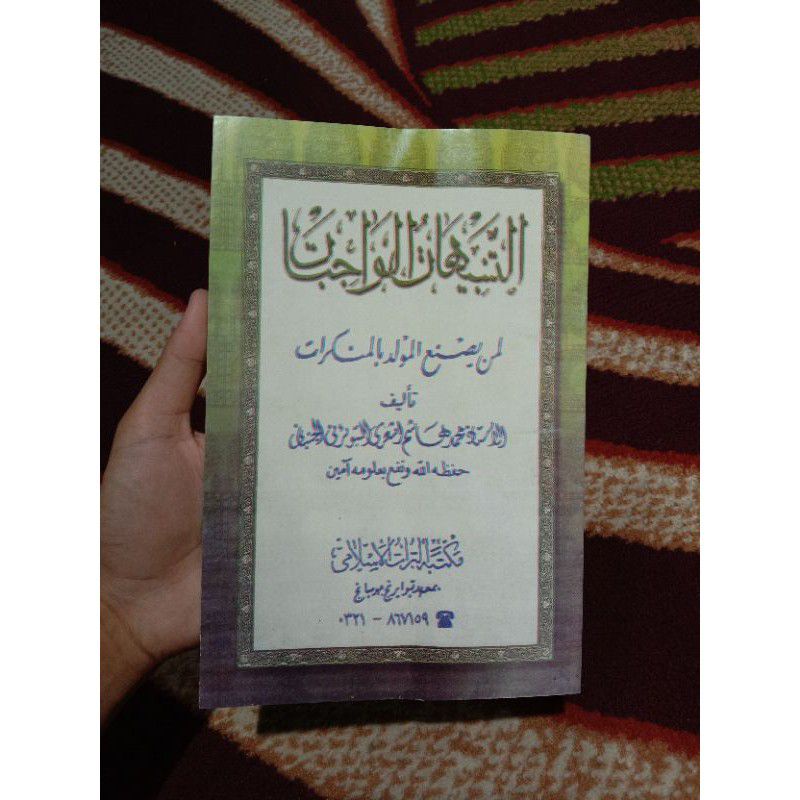 التنبيهات الواجبات
لمن يصنع المولد بالمنكرات
تأليف
الأستاذ محمد هاشم أشعرى التبوئرنى الجنبانى
حفظه الله ونفع بعلومه آمين
مكتبة التراث الإسلامى
بمعهد تبوايرنج جومبانج
☎ ٨٦٧١٥٩ - ٠٣٢١